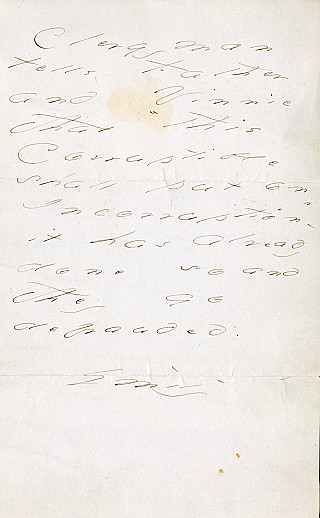 Clergyman
tells Father
and Vinnie
that "this
Corruptible
shall put on
Incorruption" -
it has already
done so and
they go
defrauded.
Emily -